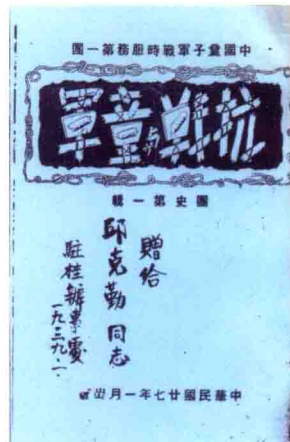 中國童子軍戰時服務第一團
抗戰与童軍
團史第一輯
贈給
邱克勤同志
駐桂辦事處
一九三九·一·
中華民國廿七年一月出版